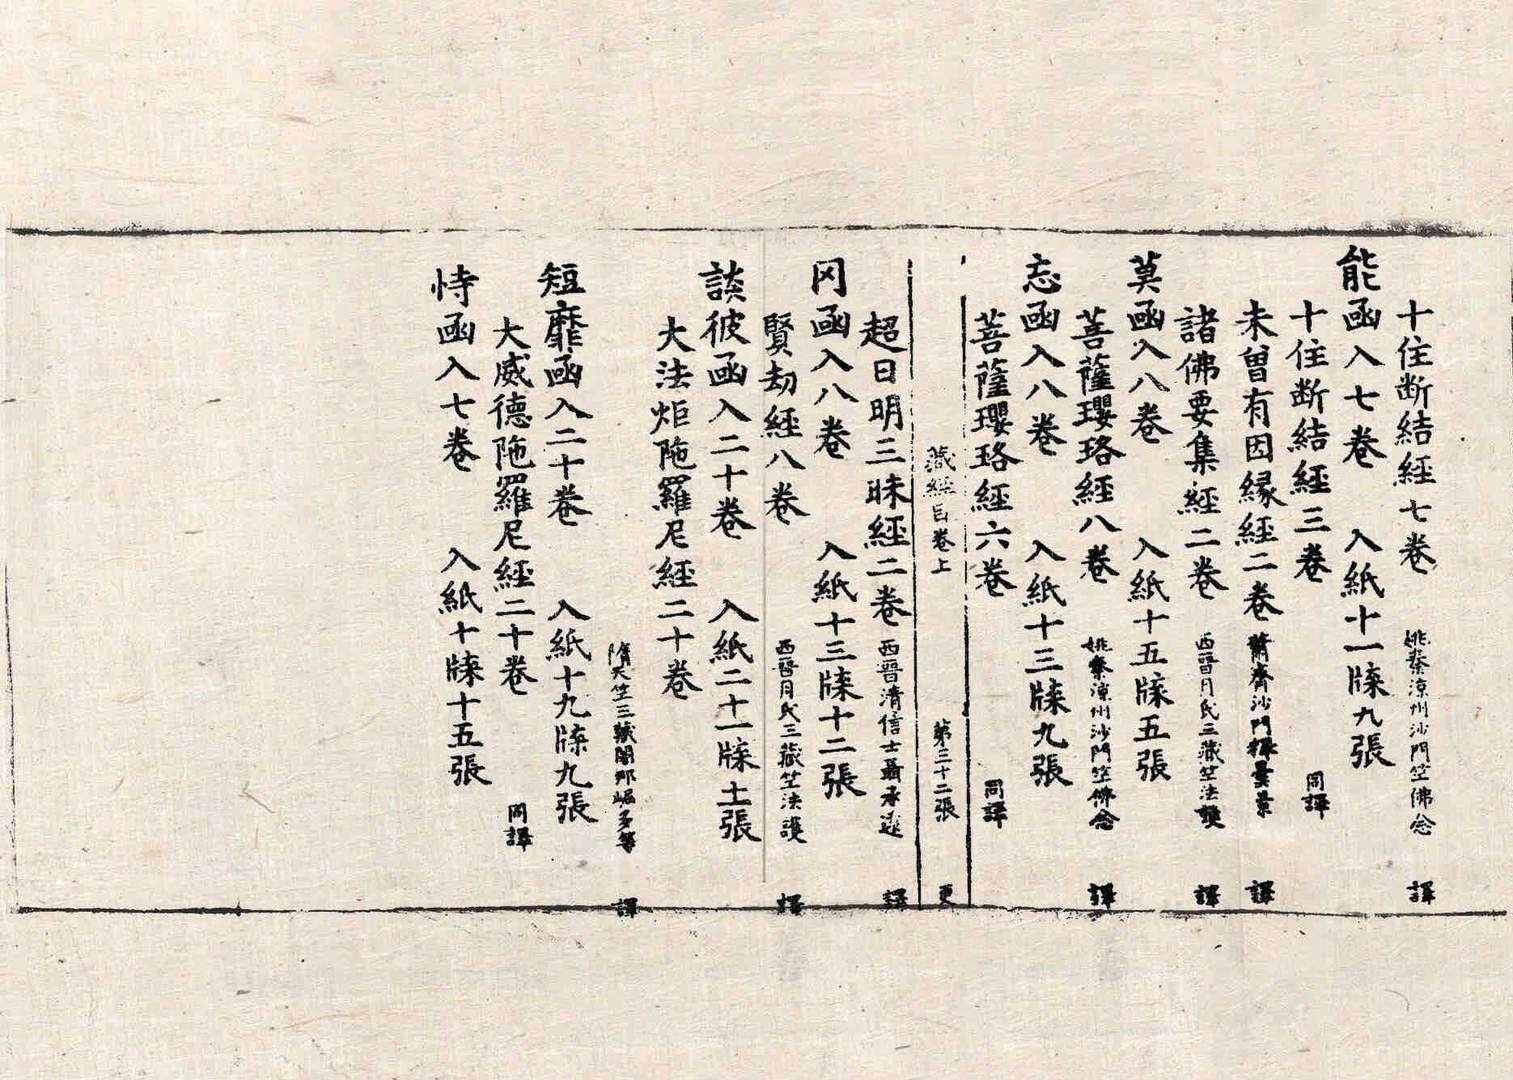 十住断結経七卷 姚秦涼州沙門竺佛念 譯
能函入七卷 入紙十一牒九張
十住断結経三卷 同譯
未曾有因縁経二卷 蕭齊沙門釋曇景 譯
諸佛要集経二卷 西晉月氏三藏竺法護 譯
莫函入八卷 入紙十五牒五張
菩薩瓔珞経八卷 姚秦涼州沙門竺佛念 譯
忘函入八卷 入紙十三牒九張
菩薩瓔珞経六卷 同譯
藏經目卷上 第三十二張 更
超日明三昧経二卷 西晉清信士聶承遠 譯
罔函入八卷 入紙十三牒十二張
賢劫経八卷 西晉月氏三藏竺法護 譯
談彼函入二十卷 入紙二十一牒十一張
大法炬陁羅尼経二十卷
隋天竺三藏闍那崛多等 譯
短靡函入二十卷 入紙十九牒九張
大威德陁羅尼経二十卷 同譯
恃函入七卷 入紙十牒十五張